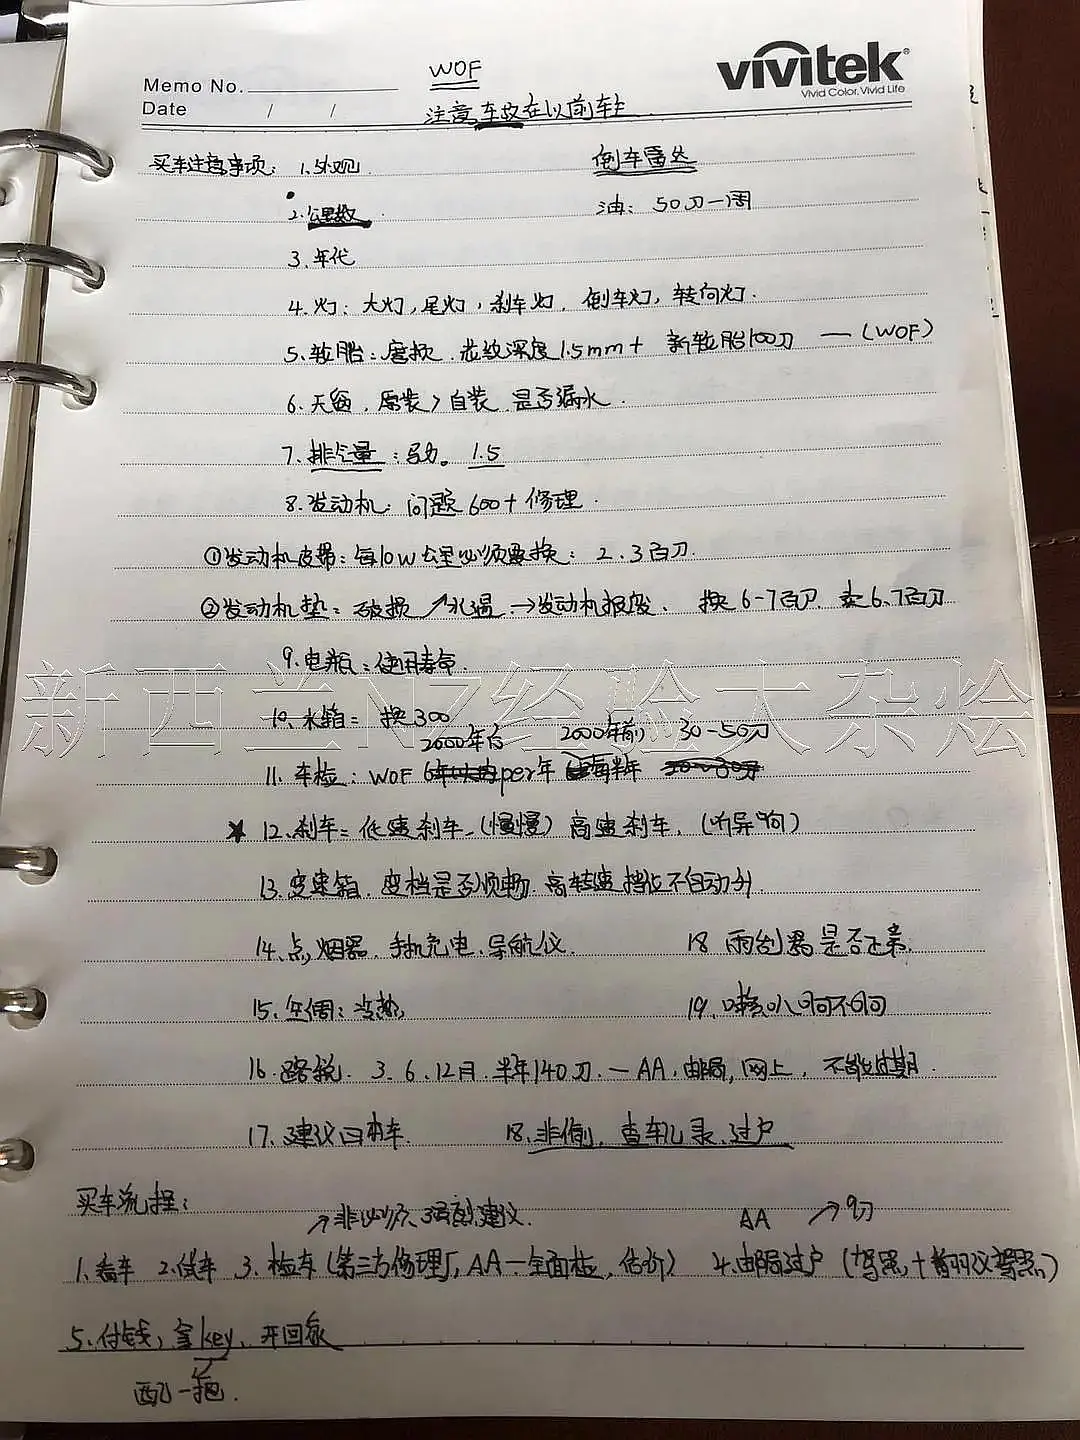 WOF
vivitek
Vivid Color, Vivid Life
Memo No.
Date / /
注意 车
买车注意事项: 1.外观 倒车雷达
2.公里数 油: 50刀一周
3.年代
4.灯: 大灯, 尾灯, 刹车灯. 倒车灯, 转向灯.
5.轮胎: 磨损. 花纹深度1.5mm+ 新轮胎100刀 — (WOF)
6.天窗. 原装>自装. 是否漏水.
7.排气量: 马力。 1.5
8.发动机: 问题600+修理.
①发动机皮带: 每10w公里必须要换: 2.3百刀.
②发动机垫: 破损↗水温→发动机报废. 换6-7百刀. 卖6.7百刀
9.电瓶: 使用寿命.
新西兰NZ经验大杂烩
10.水箱: 换300
2000年后 2000年前 30-50刀
11.车检: WOF per年 每半年
★ 12.刹车: 低速刹车-(慢慢) 高速刹车. (听异响)
13.变速箱. 变档是否顺畅. 高转速挡位不自动升.
14.点烟器. 手机充电. 导航仪. 18.雨刮器是否正常.
15.空调: 冷热 19.喇叭响不响
16.路税. 3.6.12月. 半年140刀. — AA. 邮局, 网上. 不能过期.
17.建议日本车. 18.查车记录.过户
买车流程:
↗非必须、强烈建议. AA ↗9刀
1.看车 2.试车 3.检车(第三方修理厂, AA—全面检, 估价) 4.邮局过户
5.付钱, 拿key, 开回家
配一把.